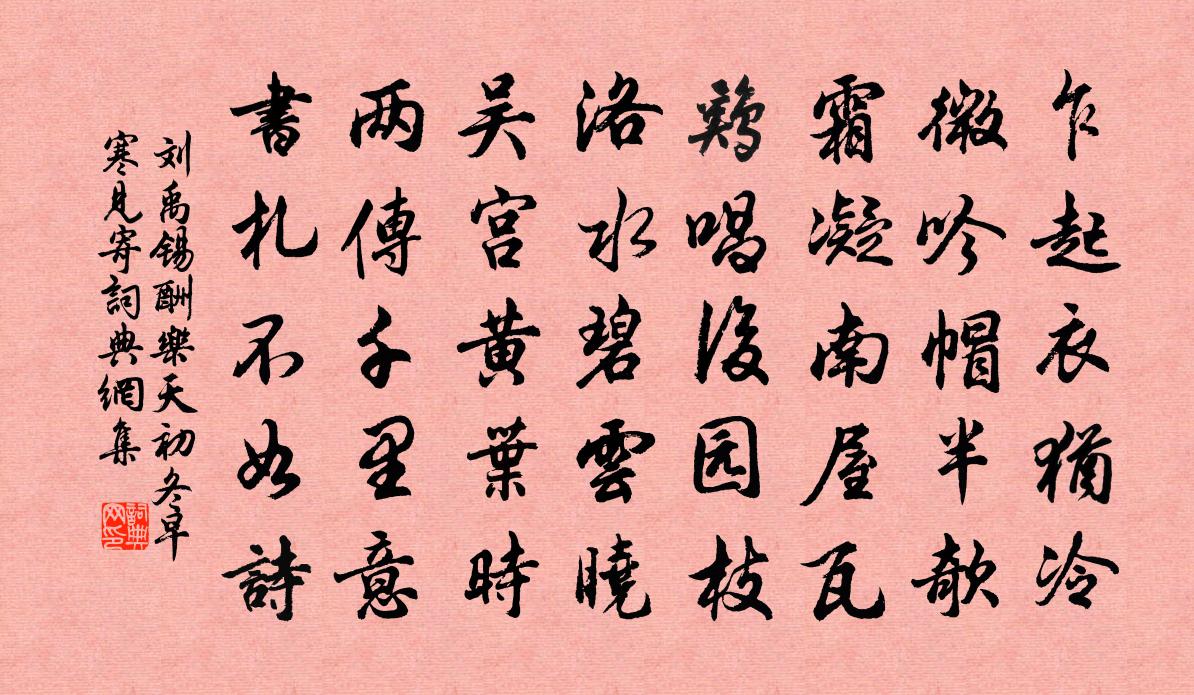 乍起衣猶冷
微吟帽半欹
霜凝南屋瓦
鷄唱後园枝
洛水碧雲曉
吴宫黄葉時
两傳千里意
書札不如詩
刘禹锡酬樂天初冬早
寒見寄詞典網集
詞典
网印